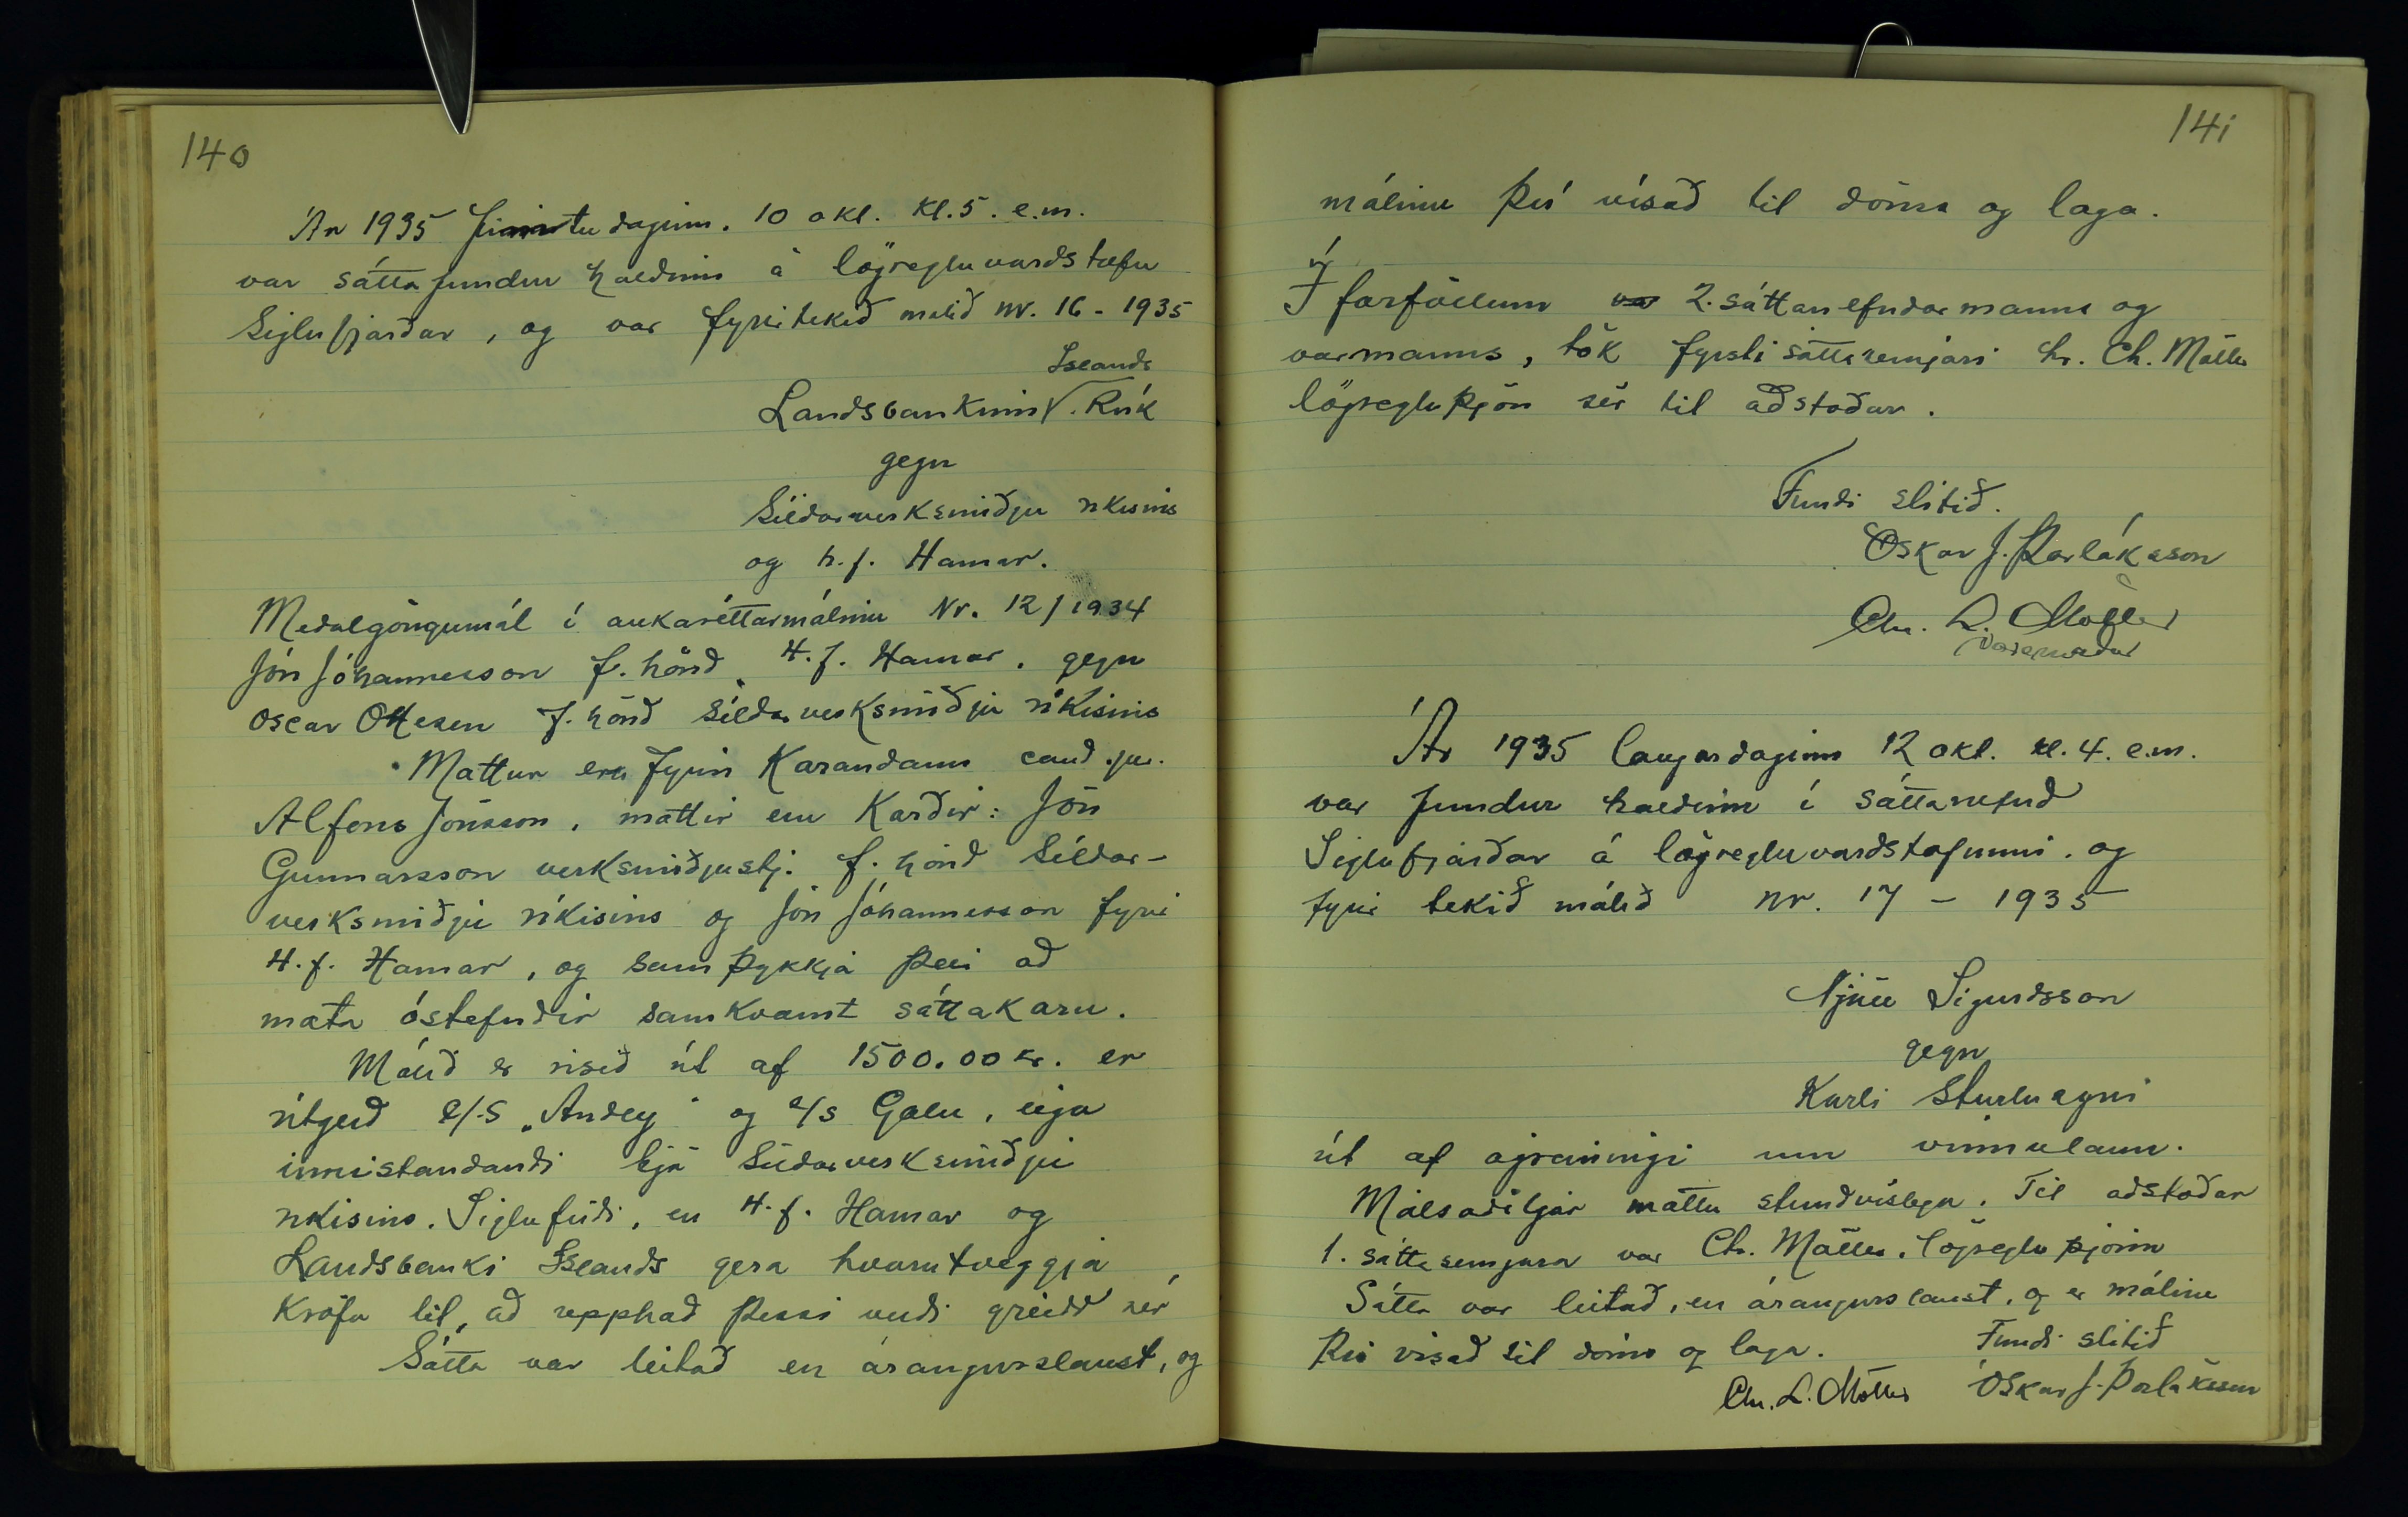 140
Ár 1935 fimmtudaginn. 10 okt. kl. 5. e.m.
var sáttafundur haldinn á lögregluvarðstofu
Siglufjarðar, og var fyrirtekið málið nr. 16 - 1935
Íslands
Landsbankinn √. Rvík
gegn
Síldarverksmiðju ríkisins
og h.f. Hamar.
Meðalgöngumál í aukaréttarmálinu Nr. 12/1934
Jón Jóhannesson f. hönd H.f. Hamar. gegn
Oscar Ottesen f. hönd Síldarverksmiðju ríkisins
Mættur er fyrir kærandann cand. jur.
Alfons Jónsson, mættir eru kærðir: Jón
Gunnarsson verksmiðjustj. f. hönd Síldar-
verksmiðju ríkisins og Jón Jóhannesson fyrir
H.f. Hamar, og samþykkja þeir að
mæta óstefndir samkvæmt sáttakæru.
Málið er risið út af 1500.00 kr. er
útgerð e/s „Andey“ og e/s Golu, eiga
innistandandi hjá Síldarverksmiðju
ríkisins. Siglufirði, en H.f. Hamar og
Landsbanki Íslands gera hvorutveggja
kröfu til, að upphæð þessi verði greidd sér
Sátta var leitað en árangurslaust, og
141
málinu því vísað til dóms og laga.
Í forföllum 2. sáttanefndarmanns og
varmanns, tók fyrsti sáttasemjari hr. Ch. Möller
lögregluþjón sér til aðstoðar.
Fundi slitið.
Óskar J. Þorláksson
Chr. L. Möller
Varamaður
Ár 1935 laugardaginn 12 okt. kl. 4. e.m.
var fundur haldinn í sáttanefnd
Siglufjarðar á lögregluvarðstofunni. og
fyrir tekið málið nr. 17 - 1935
Njáll Sigurðsson
gegn
Karli Sturlusyni
út af ágreiningi um vinnulaun.
Málsaðiljar mættu stundvíslega. Til aðstoðar
1. sáttasemjara var Ch. Möller. lögregluþjónn
Sátta var leitað, en árangurslaust, og er málinu
því vísað til dóms og laga. Fundi slitið
Chr. L. Möller Óskar J. Þorláksson